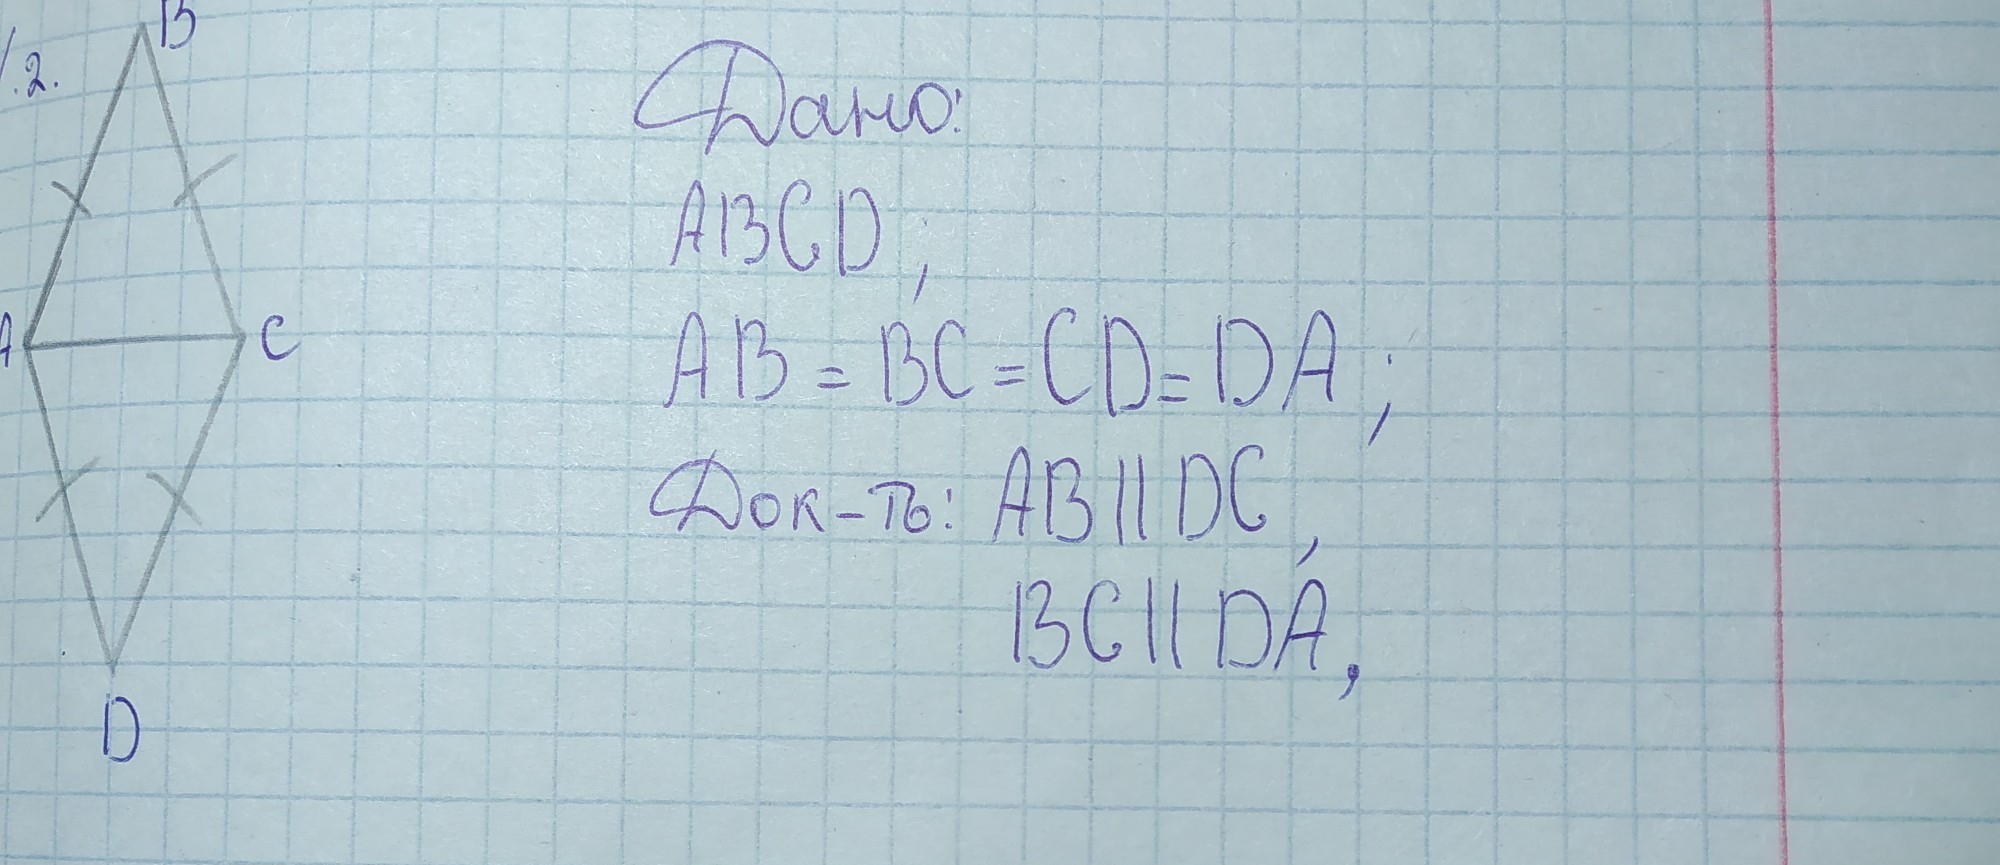 B
.2.
Дано:
ABCD;
A
C
AB = BC = CD = DA;
Док-ть: AB || DC,
BC || DA,
D